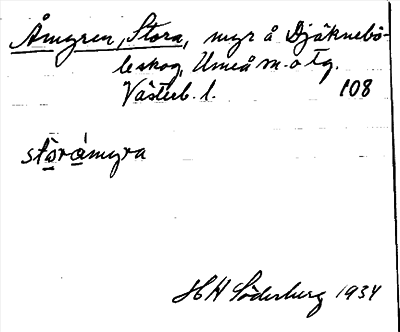 Åmyren, Stora, myr å Djäknebö-
leskog, Umeå m. o tg.
Västerb. l. 108
storåmyra
H H Söderberg 1934